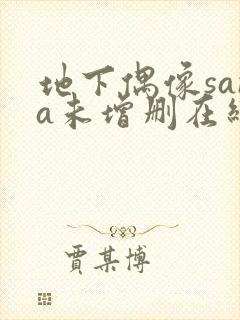 地下偶像sa
a未增删在
贾某博